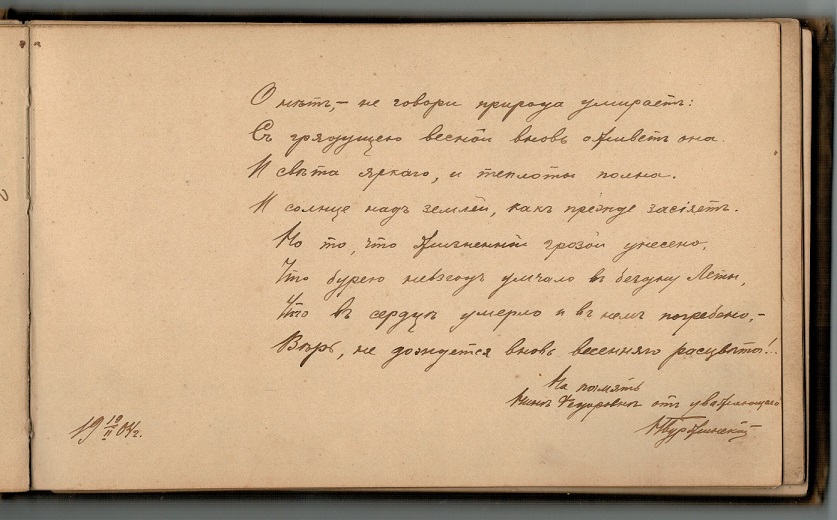 О нѣтъ,– не говори природа умираетъ:
Съ грядущею весной вновь оживетъ она.
И свѣта яркаго, и теплоты полна.
И солнце надъ землей, какъ прежде засіяетъ.
Но то, что жизненной грозой унесено,
Что бурею невзгодъ умчало въ бездну Леты,
Что въ сердцѣ умерло и въ немъ погребено,–
Вѣрь, не дождется вновь весенняго расцвѣта!..
На память
Нинѣ Федоровнѣ отъ уважающаго
19 19/II 04 г.